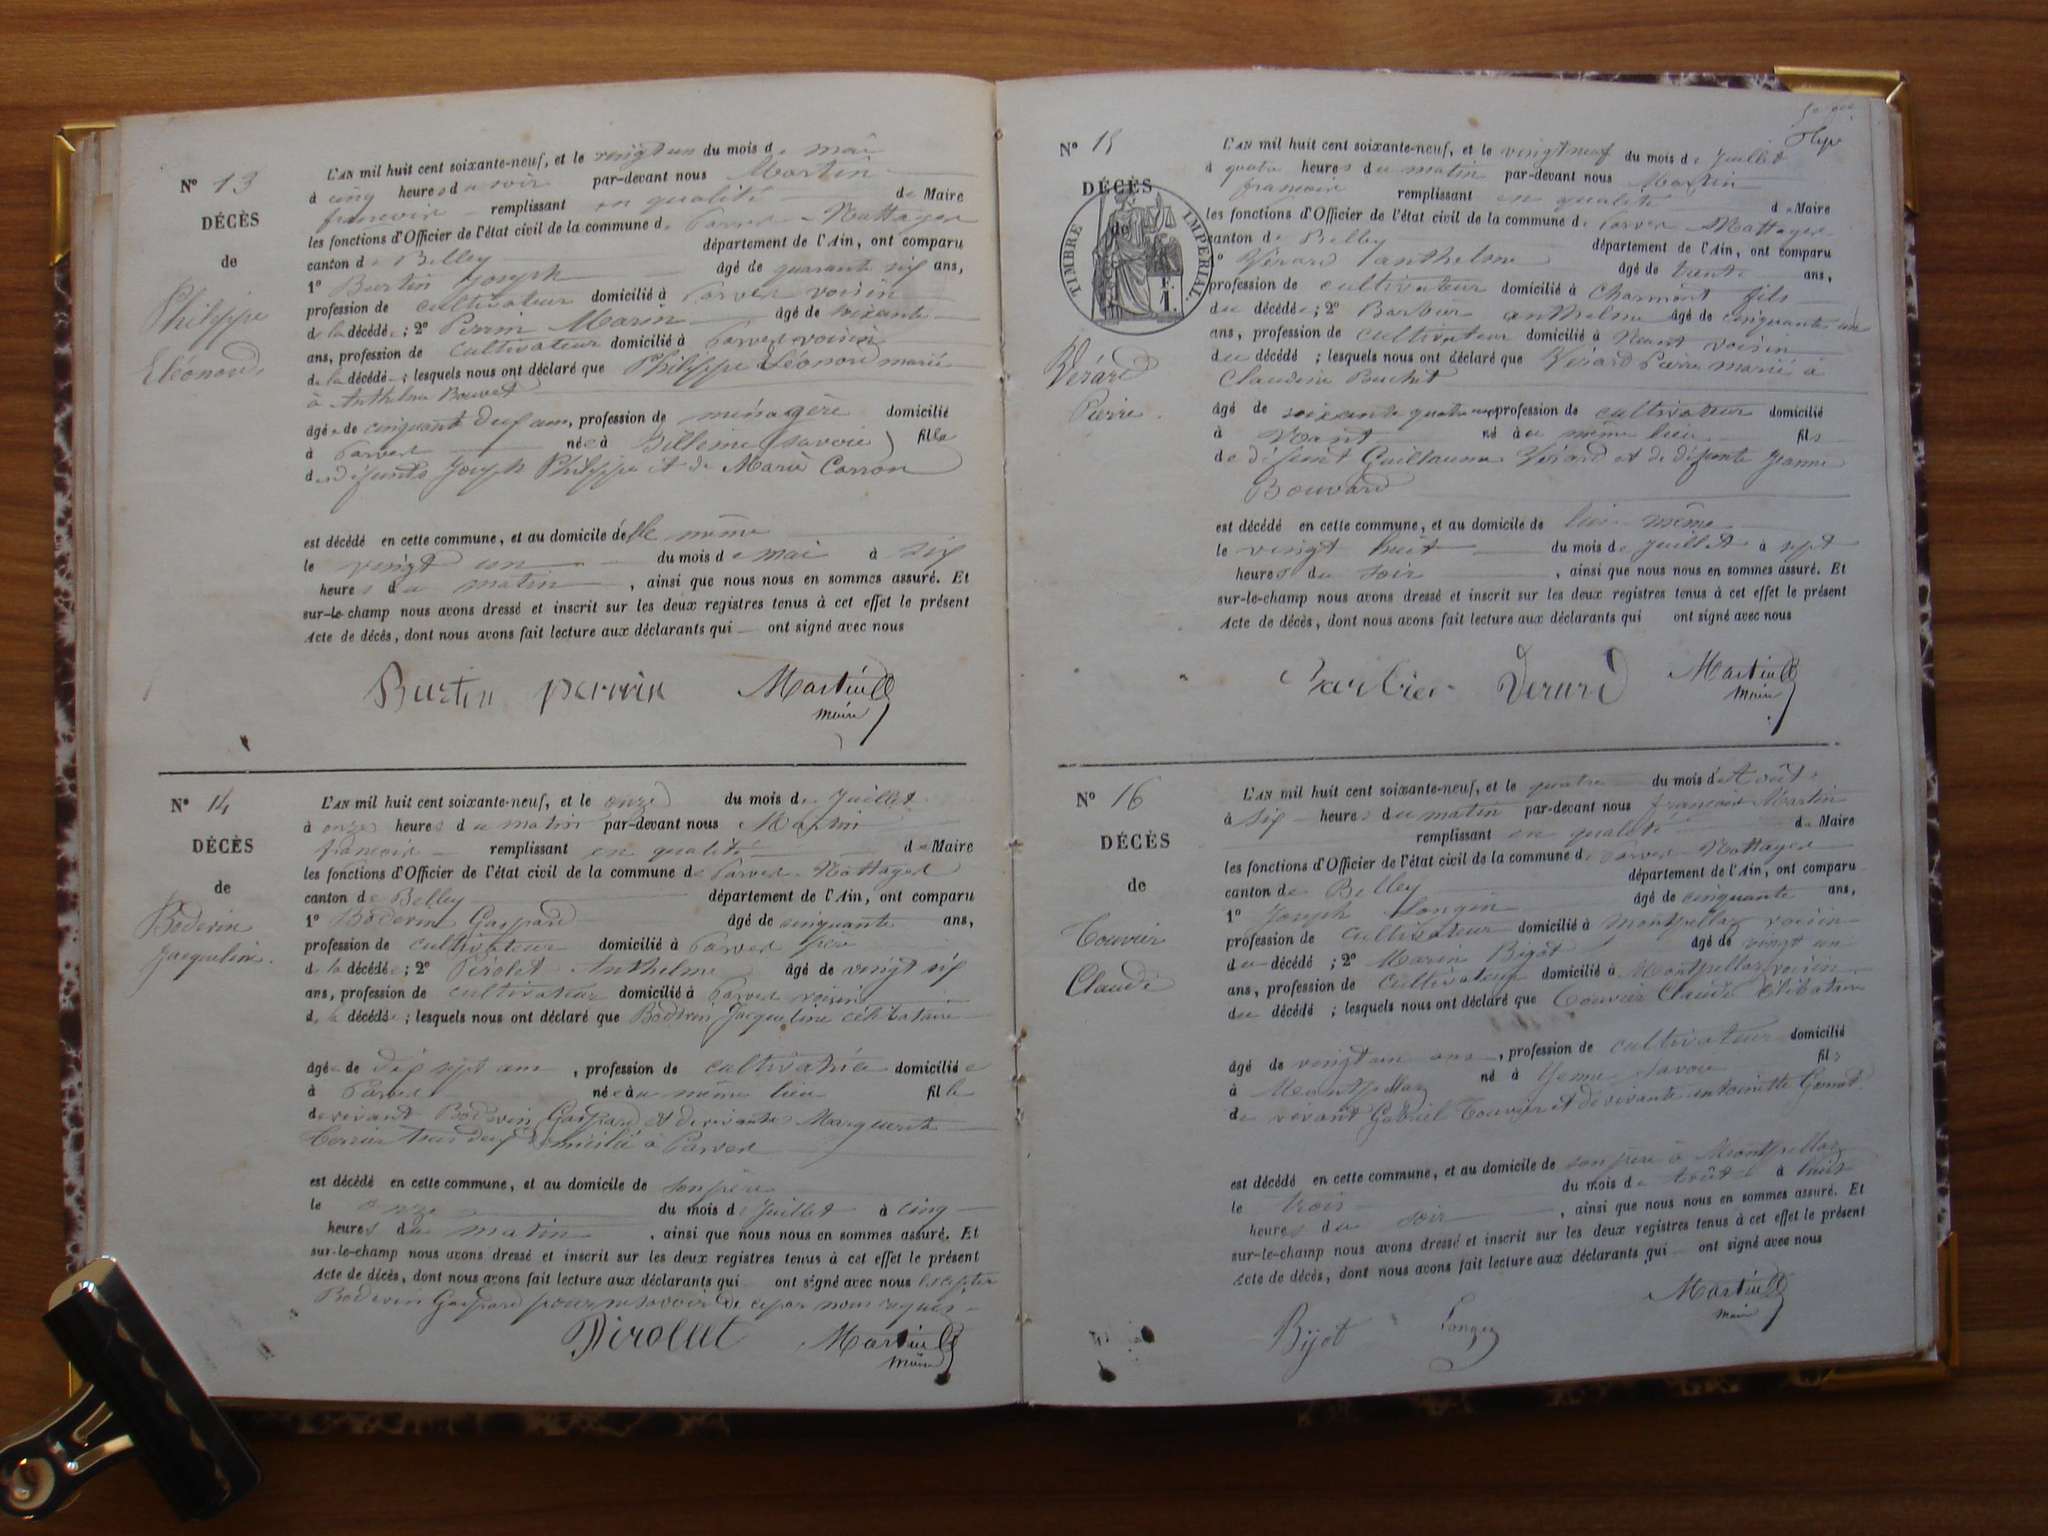 N° 13
DÉCÈS
de
Philippe
Eléonord
L'AN mil huit cent soixante-neuf, et le vingt un du mois de mai
à cinq heures du soir par-devant nous Martin
francois remplissant en qualité de Maire
les fonctions d'Officier de l'état civil de la commune de Parves - Nattages
canton de Belley département de l'Ain, ont comparu
1° Burtin Joseph âgé de quarante six ans,
profession de cultivateur domicilié à Parves voisin
de la décédée; 2° Perrin Marin âgé de soixante
ans, profession de cultivateur domicilié à Parves voisin
de la décédée; lesquels nous ont déclaré que Philippe Eléonord mariée
à Anthelme Bouvet
âgée de cinquante deux ans, profession de ménagère domicilié
à Parves née à Billième (Savoie) fille
des défunts Joseph Philippe et de Marie Carron
est décédé en cette commune, et au domicile d'elle même
le vingt un du mois de mai à six
heures du matin, ainsi que nous nous en sommes assuré. Et
sur-le-champ nous avons dressé et inscrit sur les deux registres tenus à cet effet le présent
Acte de décès, dont nous avons fait lecture aux déclarants qui ont signé avec nous
Burtin perrin Martin
maire
N° 14
DÉCÈS
de
Boderin
Jacqueline
L'AN mil huit cent soixante-neuf, et le onze du mois de Juillet
à onze heures du matin par-devant nous Martin
francois remplissant en qualité de Maire
les fonctions d'Officier de l'état civil de la commune de Parves-Nattages
canton de Belley département de l'Ain, ont comparu
1° Boderin Gaspard âgé de cinquante ans,
profession de cultivateur domicilié à Parves père
de la décédée; 2° Pirolet Anthelme âgé de vingt six
ans, profession de cultivateur domicilié à Parves voisin
de la décédée; lesquels nous ont déclaré que Boderin Jacqueline célibataire
âgée de dix sept ans, profession de cultivatrice domiciliée
à Parves née au même lieu fille
de vivant Boderin Gaspard et de vivante Marguerite
tous deux domicilié à Parves
est décédé en cette commune, et au domicile de son père
le onze du mois de Juillet à cinq
heures du matin, ainsi que nous nous en sommes assuré. Et
sur-le-champ nous avons dressé et inscrit sur les deux registres tenus à cet effet le présent
Acte de décès, dont nous avons fait lecture aux déclarants qui ont signé avec nous
Boderin Gaspard pour ne savoir de ce par nous requis
Pirollet Martin
maire
N° 15
DÉCÈS
de
TIMBRE IMPERIAL.
1 F.
Vérard
Pierre
L'AN mil huit cent soixante-neuf, et le vingt neuf du mois de Juillet
à quatre heures du matin par-devant nous Martin
francois remplissant en qualité de Maire
les fonctions d'Officier de l'état civil de la commune de Parves Nattages
canton de Belley département de l'Ain, ont comparu
1° Vérard Panthelme âgé de trente ans,
profession de cultivateur domicilié à Charmont fils
du décédé; 2° Barbier anthelme âgé de cinquante un
ans, profession de cultivateur domicilié à Nant voisin
du décédé; lesquels nous ont déclaré que Vérard Pierre marié à
Claudine Buchet
âgé de soixante quatre ans profession de cultivateur domicilié
à Nant né au même lieu fils
de défunt Guillaume Vérard et de défunte Jeanne
Bouvard
est décédé en cette commune, et au domicile de lui-même
le vingt huit du mois de Juillet à sept
heures du soir, ainsi que nous nous en sommes assuré. Et
sur-le-champ nous avons dressé et inscrit sur les deux registres tenus à cet effet le présent
Acte de décès, dont nous avons fait lecture aux déclarants qui ont signé avec nous
Barbier Verard Martin
maire
N° 16
DÉCÈS
de
Touvier
Claude
L'AN mil huit cent soixante-neuf, et le quatre du mois d'Août
à six heures du matin par-devant nous françois Martin
remplissant en qualité de Maire
les fonctions d'Officier de l'état civil de la commune de Parves Nattages
canton de Belley département de l'Ain, ont comparu
1° Joseph Longin âgé de cinquante ans,
profession de cultivateur domicilié à Montpellaz voisin
du décédé; 2° Marin Bigot âgé de vingt un
ans, profession de cultivateur domicilié à Montpellaz voisin
du décédé; lesquels nous ont déclaré que Touvier Claude célibataire
âgé de vingt un ans, profession de cultivateur domicilié
à Montpellaz né à Yenne Savoie fils
de vivant Gabriel Touvier et de vivante antoinette
est décédé en cette commune, et au domicile de son père à Montpellaz
le trois du mois de Août à huit
heures du soir, ainsi que nous nous en sommes assuré. Et
sur-le-champ nous avons dressé et inscrit sur les deux registres tenus à cet effet le présent
Acte de décès, dont nous avons fait lecture aux déclarants qui ont signé avec nous
Bijot Martin
maire